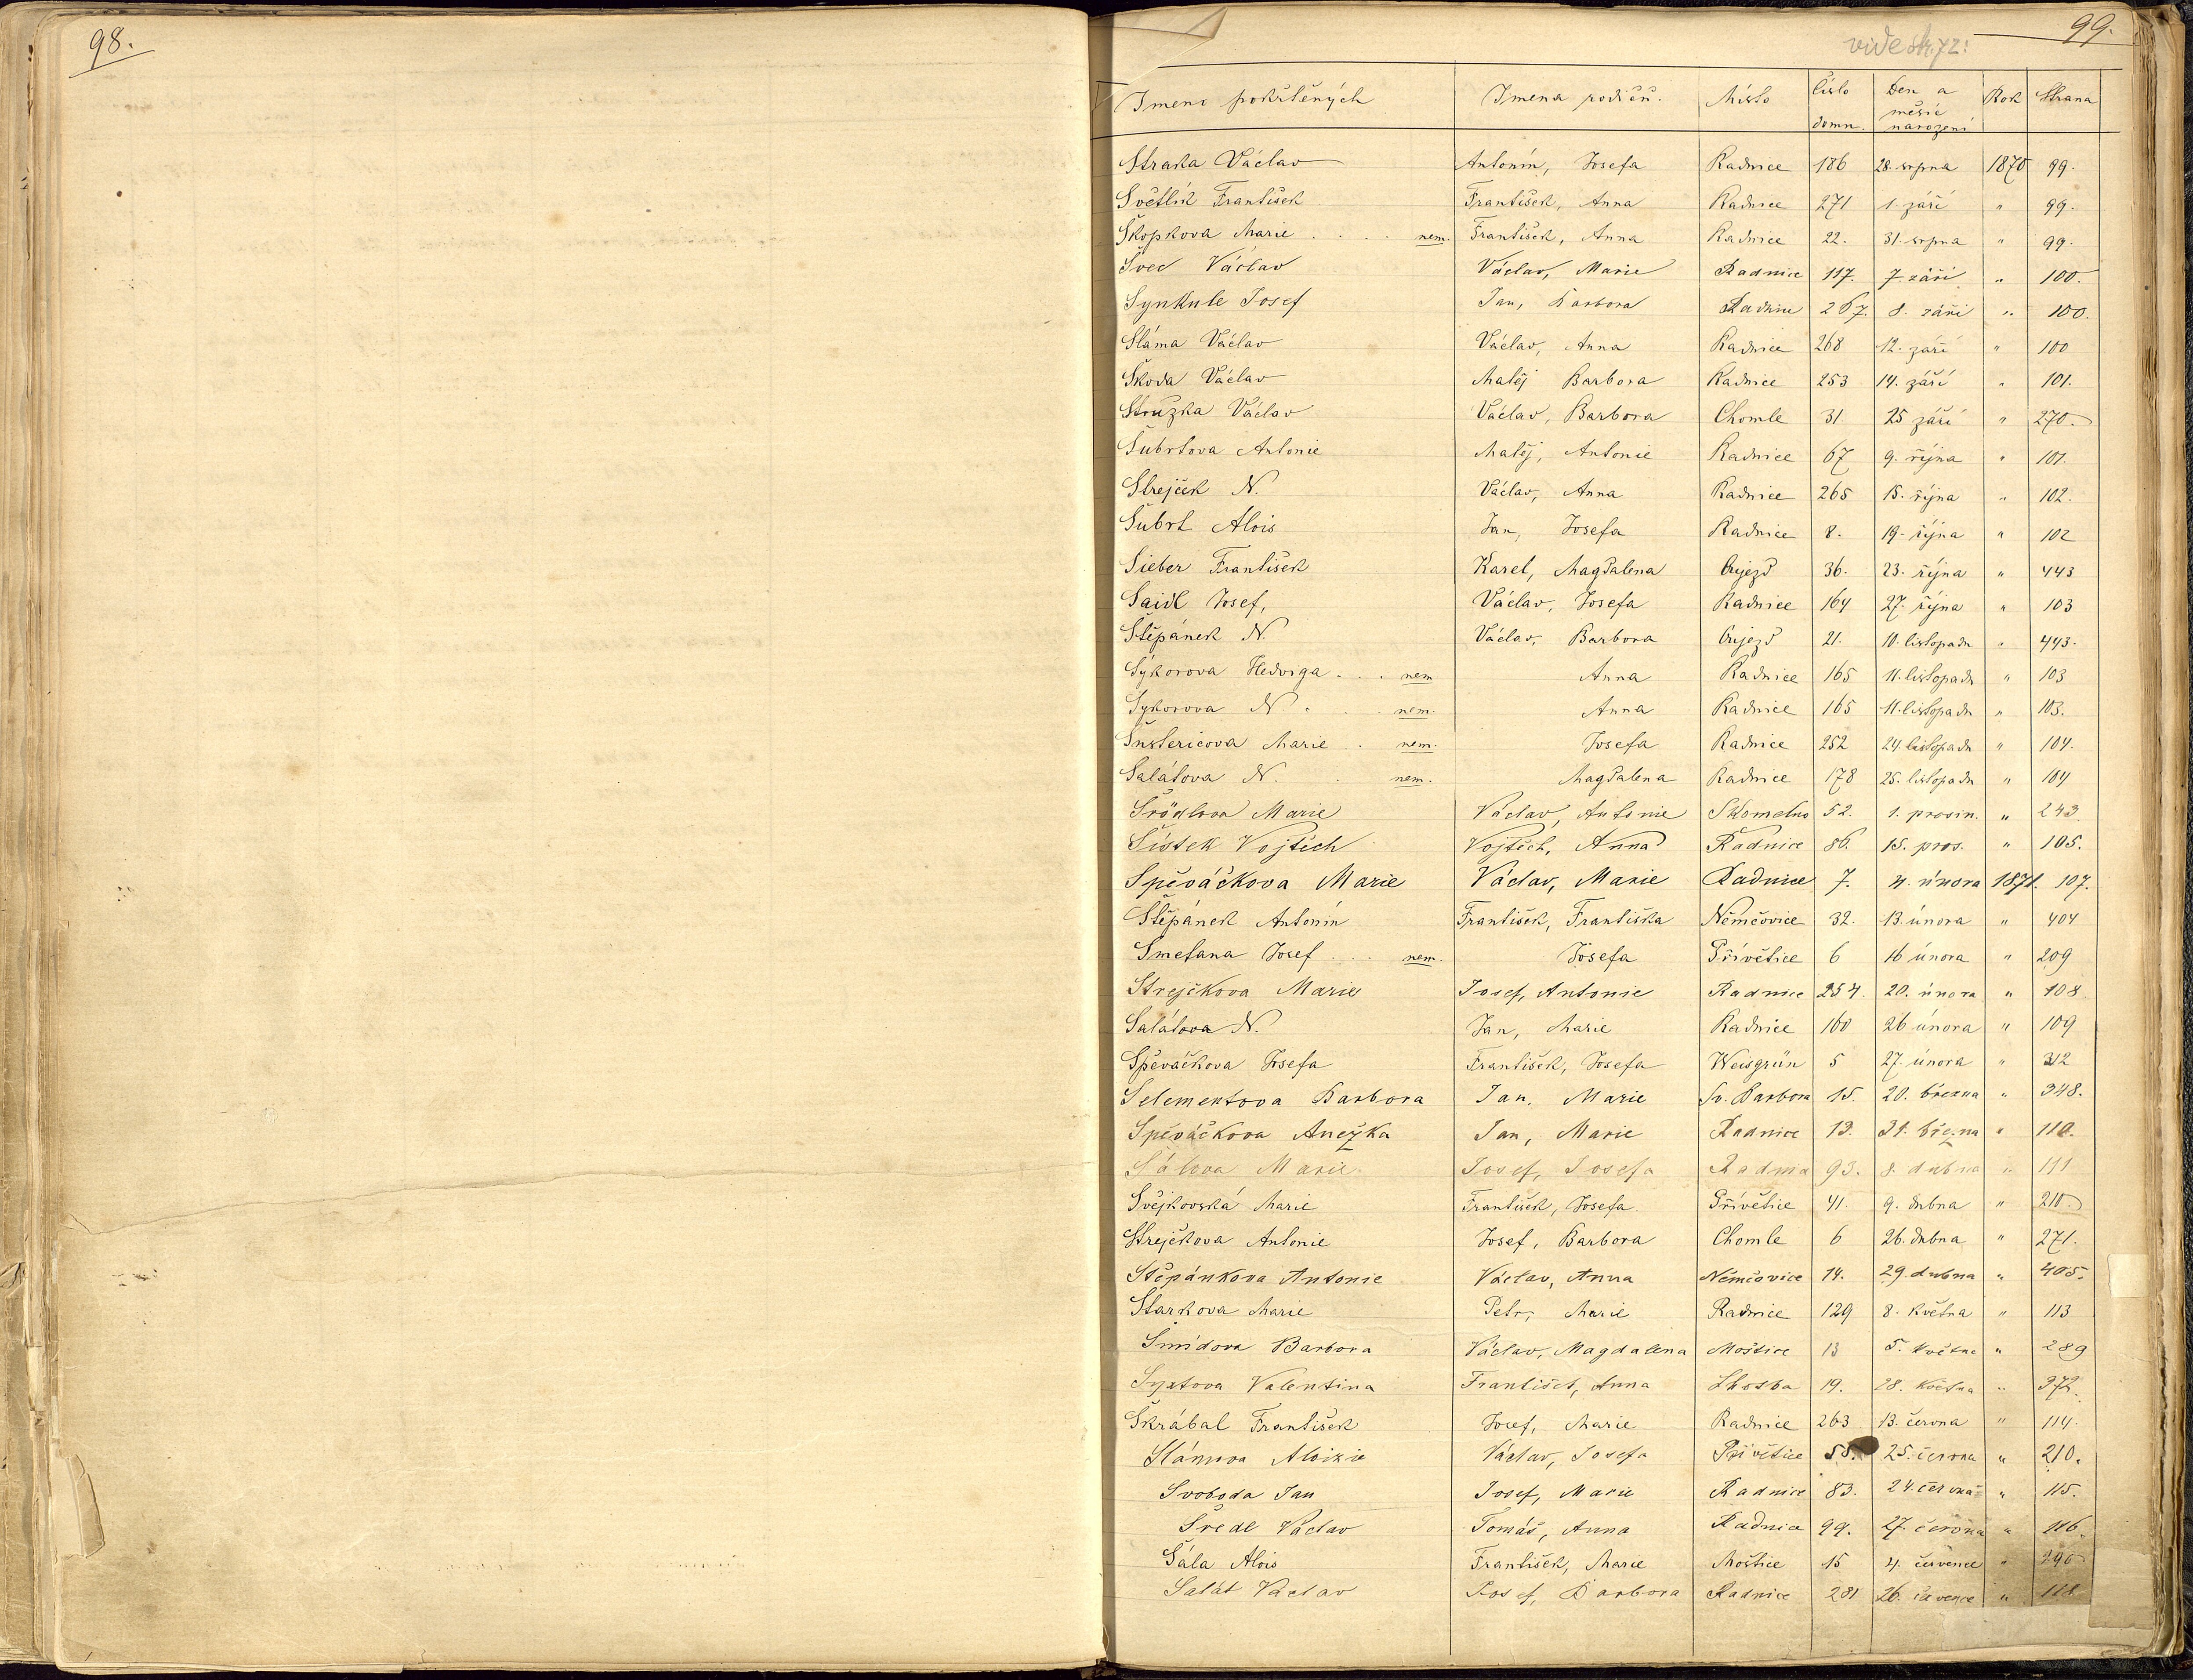 98.
99.
vide str. 72:
Jmeno pokřtěných Jmena rodičů. Místo Číslo domu. Den a měsíc narození Rok Strana
Straka Václav Antonín, Josefa Radnice 186 28. srpna 1870 99.
Světlík František František, Anna Radnice 271 1. září " 99.
Škopkova Marie . . . . nem. František, Anna Radnice 22. 31. srpna " 99.
Švec Václav Václav, Marie Radnice 117. 7. září " 100.
Synkule Josef Jan, Barbora Radnice 267. 8. září " 100.
Sláma Václav Václav, Anna Radnice 268 12. září " 100
Škoda Václav Matěj Barbora Radnice 253 14. září " 101.
Stružka Václav Václav, Barbora Chomle 31 25 září " 270.
Šubrtova Antonie Matěj, Antonie Radnice 67 9. října " 101.
Strejček N. Václav, Anna Radnice 265 15. října " 102.
Šubrt Alois Jan, Josefa Radnice 8. 19. října " 102
Sieber František Karel, Magdalena Újezd 36. 23. října " 443
Saidl Josef, Václav, Josefa Radnice 164 27. října " 103
Štěpánek N. Václav, Barbora Újezd 21. 10. listopadu " 443.
Sýkorova Hedviga . . . nem Anna Radnice 165 11. listopadu " 103
Sykorova N . . . nem. Anna Radnice 165 11. listopadu " 103.
Marie . . nem. Josefa Radnice 252 24. listopadu " 104.
Salátova N. . nem. Magdalena Radnice 178 25. listopadu " 104
Marie Václav, Antonie Skomelno 52. 1. prosin. " 243.
Šístek Vojtěch Vojtěch, Anna Radnice 86. 15. pros. " 105.
Spěváčkova Marie Václav, Marie Radnice 7. 4. února 1871. 107.
Štěpánek Antonín František, Františka Němčovice 32. 13. února " 404
Smetana Josef . . . nem. Josefa Přívětice 6 16 února " 209
Strejčkova Marie Josef, Antonie Radnice 254. 20. února " 108
Salátova N. Jan, Marie Radnice 160 26 února " 109
Spěváčkova Josefa František, Josefa Weisgrün 5 27. února " 312
Selementova Barbora Jan, Marie Sv. Barbora 15. 20. března " 348.
Spěváčkova Anežka Jan, Marie Radnice 13. 31. března " 110.
Šálova Marie Josef, Josefa 93. 8. dubna " 111
Švejkovská Marie František, Josefa Přívětice 41. 9. dubna " 210
Strejčkova Antonie Josef, Barbora Chomle 6 26. dubna " 271.
Štěpánkova Antonie Václav, Anna Němčovice 14. 29. dubna " 405.
Starkova Marie Petr, Marie Radnice 129 8. května " 113
Šmídova Barbora Václav, Magdalena Moštice 13 5. května " 289
Syxtova Valentina František, Anna Lhotka 19. 28. května " 372.
Škrábal František Josef, Marie Radnice 263 13. června " 114.
Slámova Aloizie Václav, Josefa Přívětice 55. 25. června " 210.
Svoboda Jan Josef, Marie Radnice 83. 24. června " 115.
Šredl Václav Tomáš, Anna Radnice 99. 27. června " 116.
Šála Alois František, Marie Moštice 15 4. července " 290
Salát Václav Josef, Barbora Radnice 281 26. července " 118